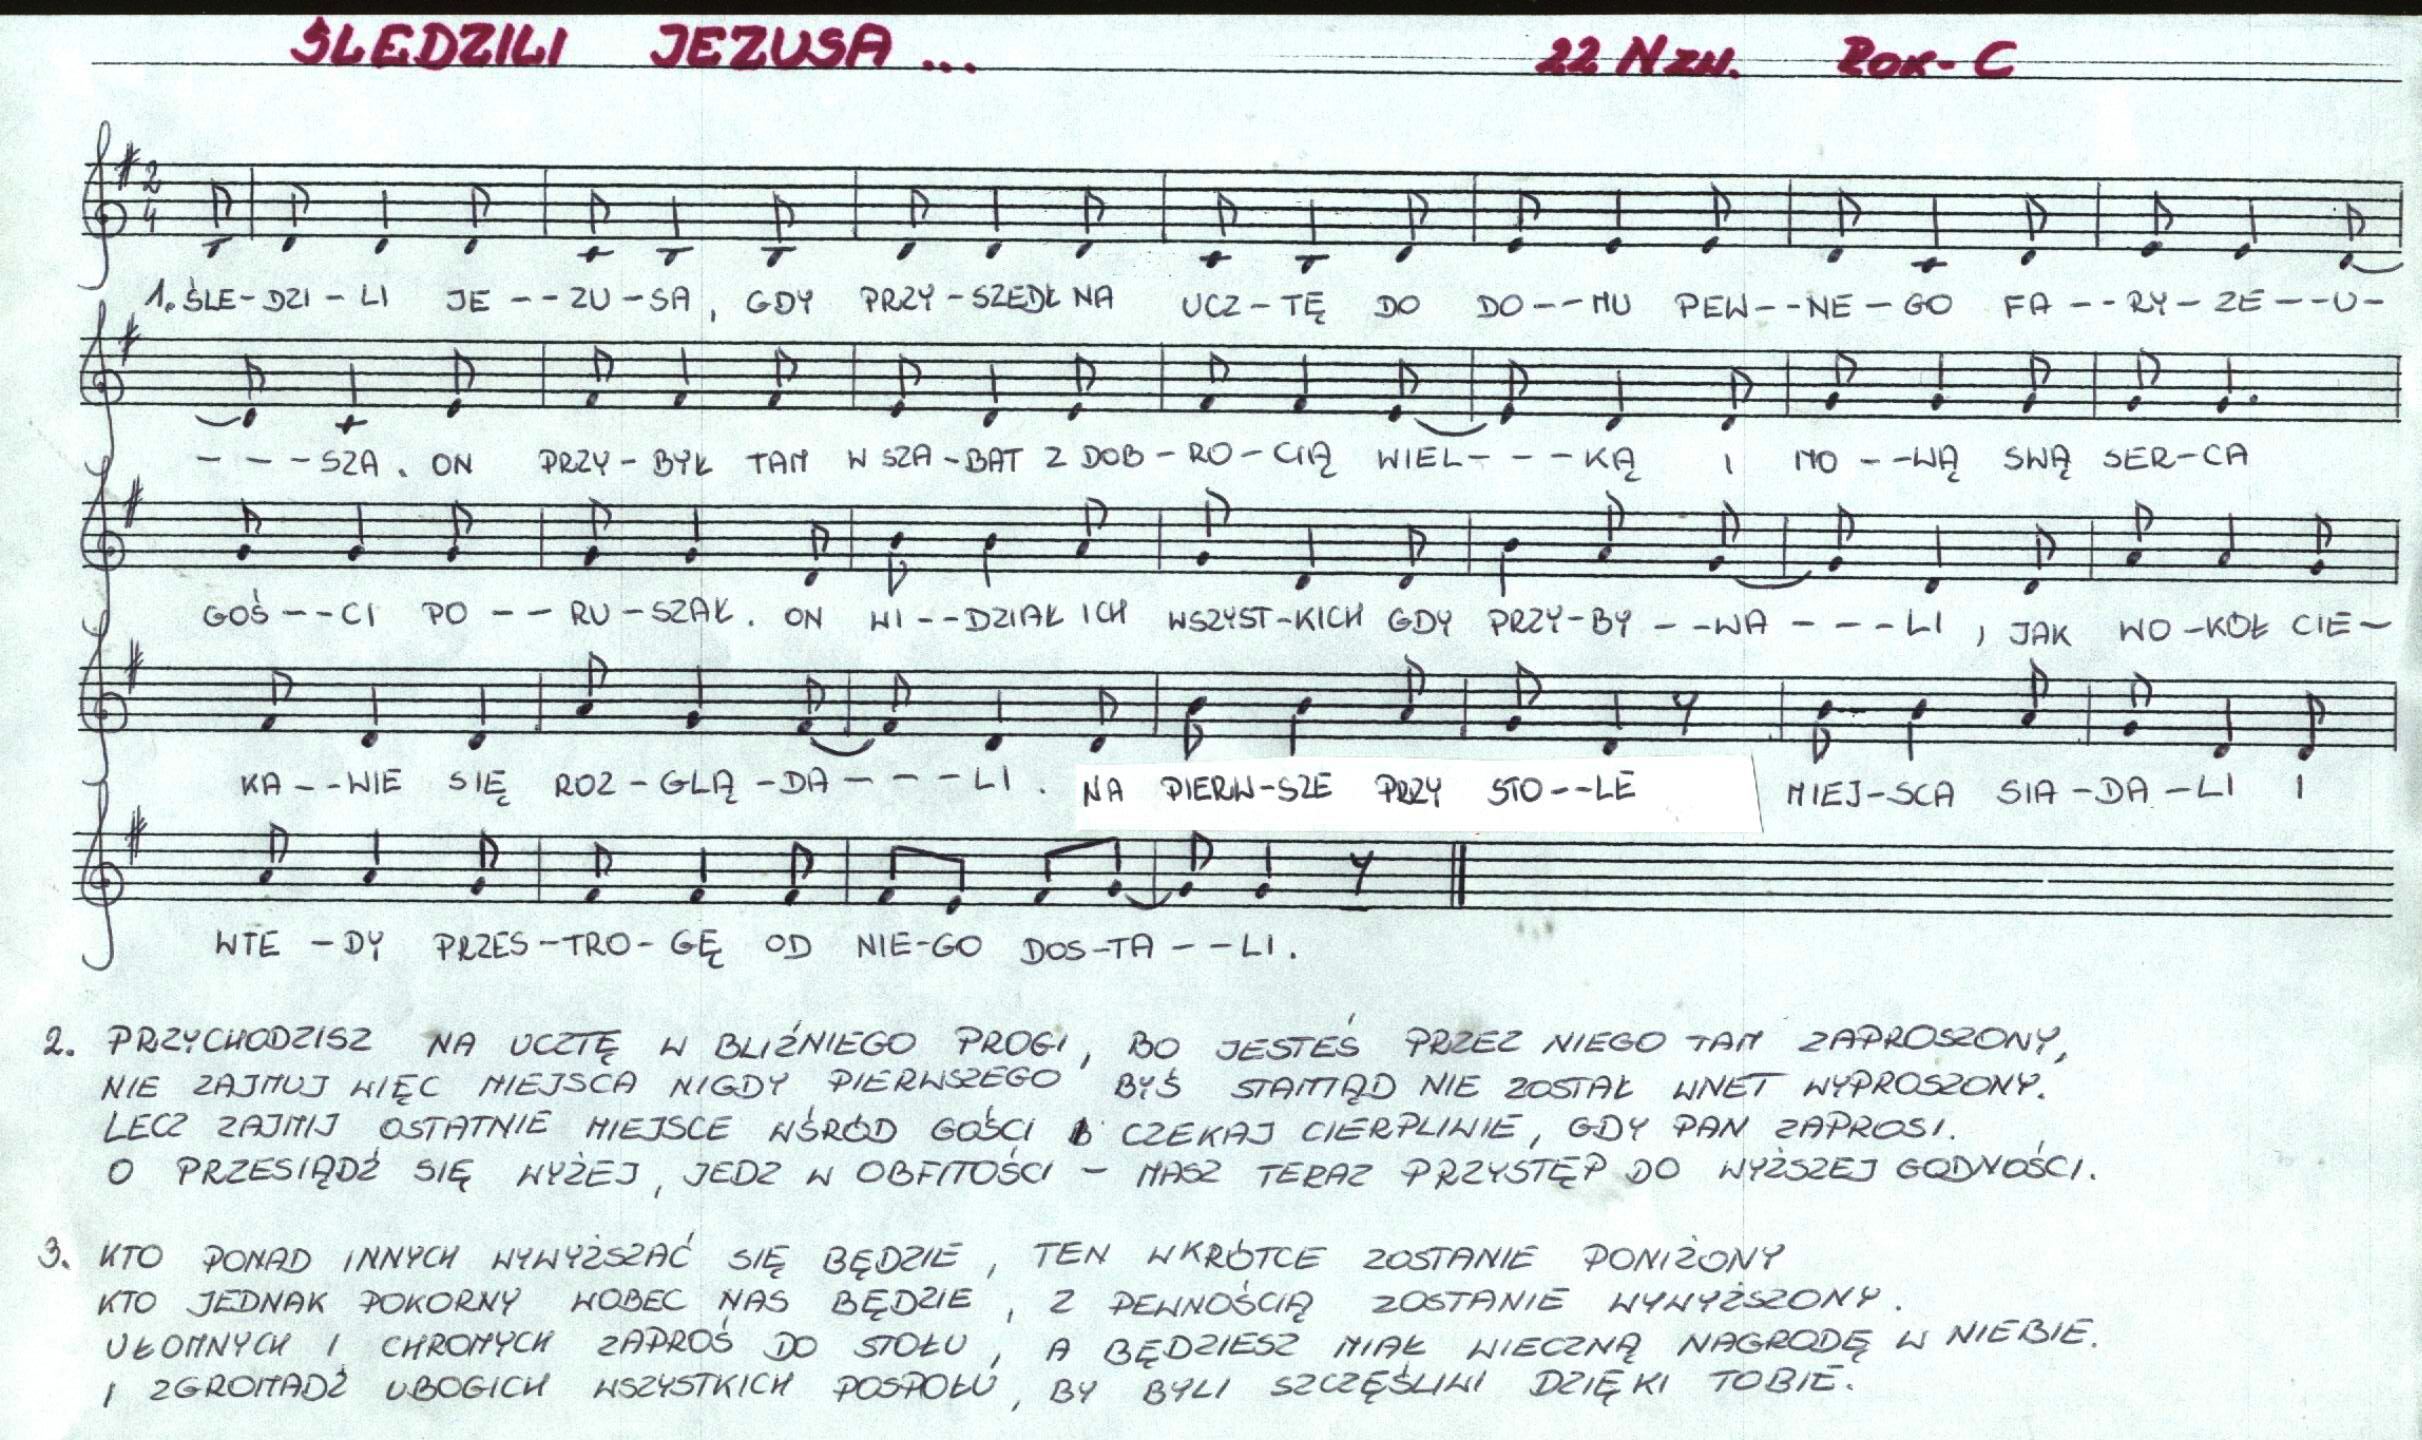 ŚLEDZILI JEZUSA ... 22 N ZW. ROK - C
2
4
1. ŚLE-DZI-LI JE--ZU-SA, GDY PRZY-SZEDŁ NA UCZ-TĘ DO DO--MU PEW--NE-GO FA--RY-ZE--U-
---SZA. ON PRZY-BYŁ TAM W SZA-BAT Z DOB-RO-CIĄ WIEL---KĄ I MO--WĄ SWĄ SER-CA
GOŚ--CI PO--RU-SZAŁ. ON WI--DZIAŁ ICH WSZYST-KICH GDY PRZY-BY--WA---LI, JAK WO-KÓŁ CIE-
KA--WIE SIĘ ROZ-GLĄ-DA---LI. NA PIERW-SZE PRZY STO--LE MIEJ-SCA SIA-DA-LI I
WTE-DY PRZES-TRO-GĘ OD NIE-GO DOS-TA--LI.
2. PRZYCHODZISZ NA UCZTĘ W BLIŹNIEGO PROGI, BO JESTEŚ PRZEZ NIEGO TAM ZAPROSZONY,
NIE ZAJMUJ WIĘC MIEJSCA NIGDY PIERWSZEGO BYŚ STAMTĄD NIE ZOSTAŁ WNET WYPROSZONY.
LECZ ZAJMIJ OSTATNIE MIEJSCE WŚRÓD GOŚCI CZEKAJ CIERPLIWIE, GDY PAN ZAPROSI.
O PRZESIĄDŹ SIĘ WYŻEJ, JEDZ W OBFITOŚCI - MASZ TERAZ PRZYSTĘP DO WYŻSZEJ GODNOŚCI.
3. KTO PONAD INNYCH WYWYŻSZAĆ SIĘ BĘDZIE, TEN WKRÓTCE ZOSTANIE PONIŻONY
KTO JEDNAK POKORNY WOBEC NAS BĘDZIE, Z PEWNOŚCIĄ ZOSTANIE WYWYŻSZONY.
UŁOMNYCH I CHROMYCH ZAPROŚ DO STOŁU, A BĘDZIESZ MIAŁ WIECZNĄ NAGRODĘ W NIEBIE.
I ZGROMADŹ UBOGICH WSZYSTKICH POSPOŁU, BY BYLI SZCZĘŚLIWI DZIĘKI TOBIE.